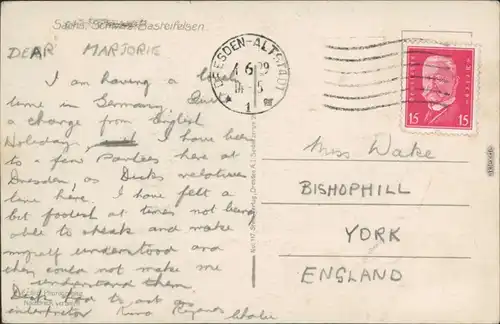 Sächs. Schweiz Basteifelsen.
DEAR MARJORIE
I am having a
time in Germany, Quite
a change from English
Holiday, I have been
to a few Parties here at
Dresden, as Dicks relatives
live here. I have felt a
bit foolish at times not being
able to speak and make
myself understood and
they could not make me
understand them.
Dick had to act as
interpreter Kind Regards
DRESDEN-ALTSTADT
1
15 15
Miss Wake
BISHOPHILL
YORK
ENGLAND